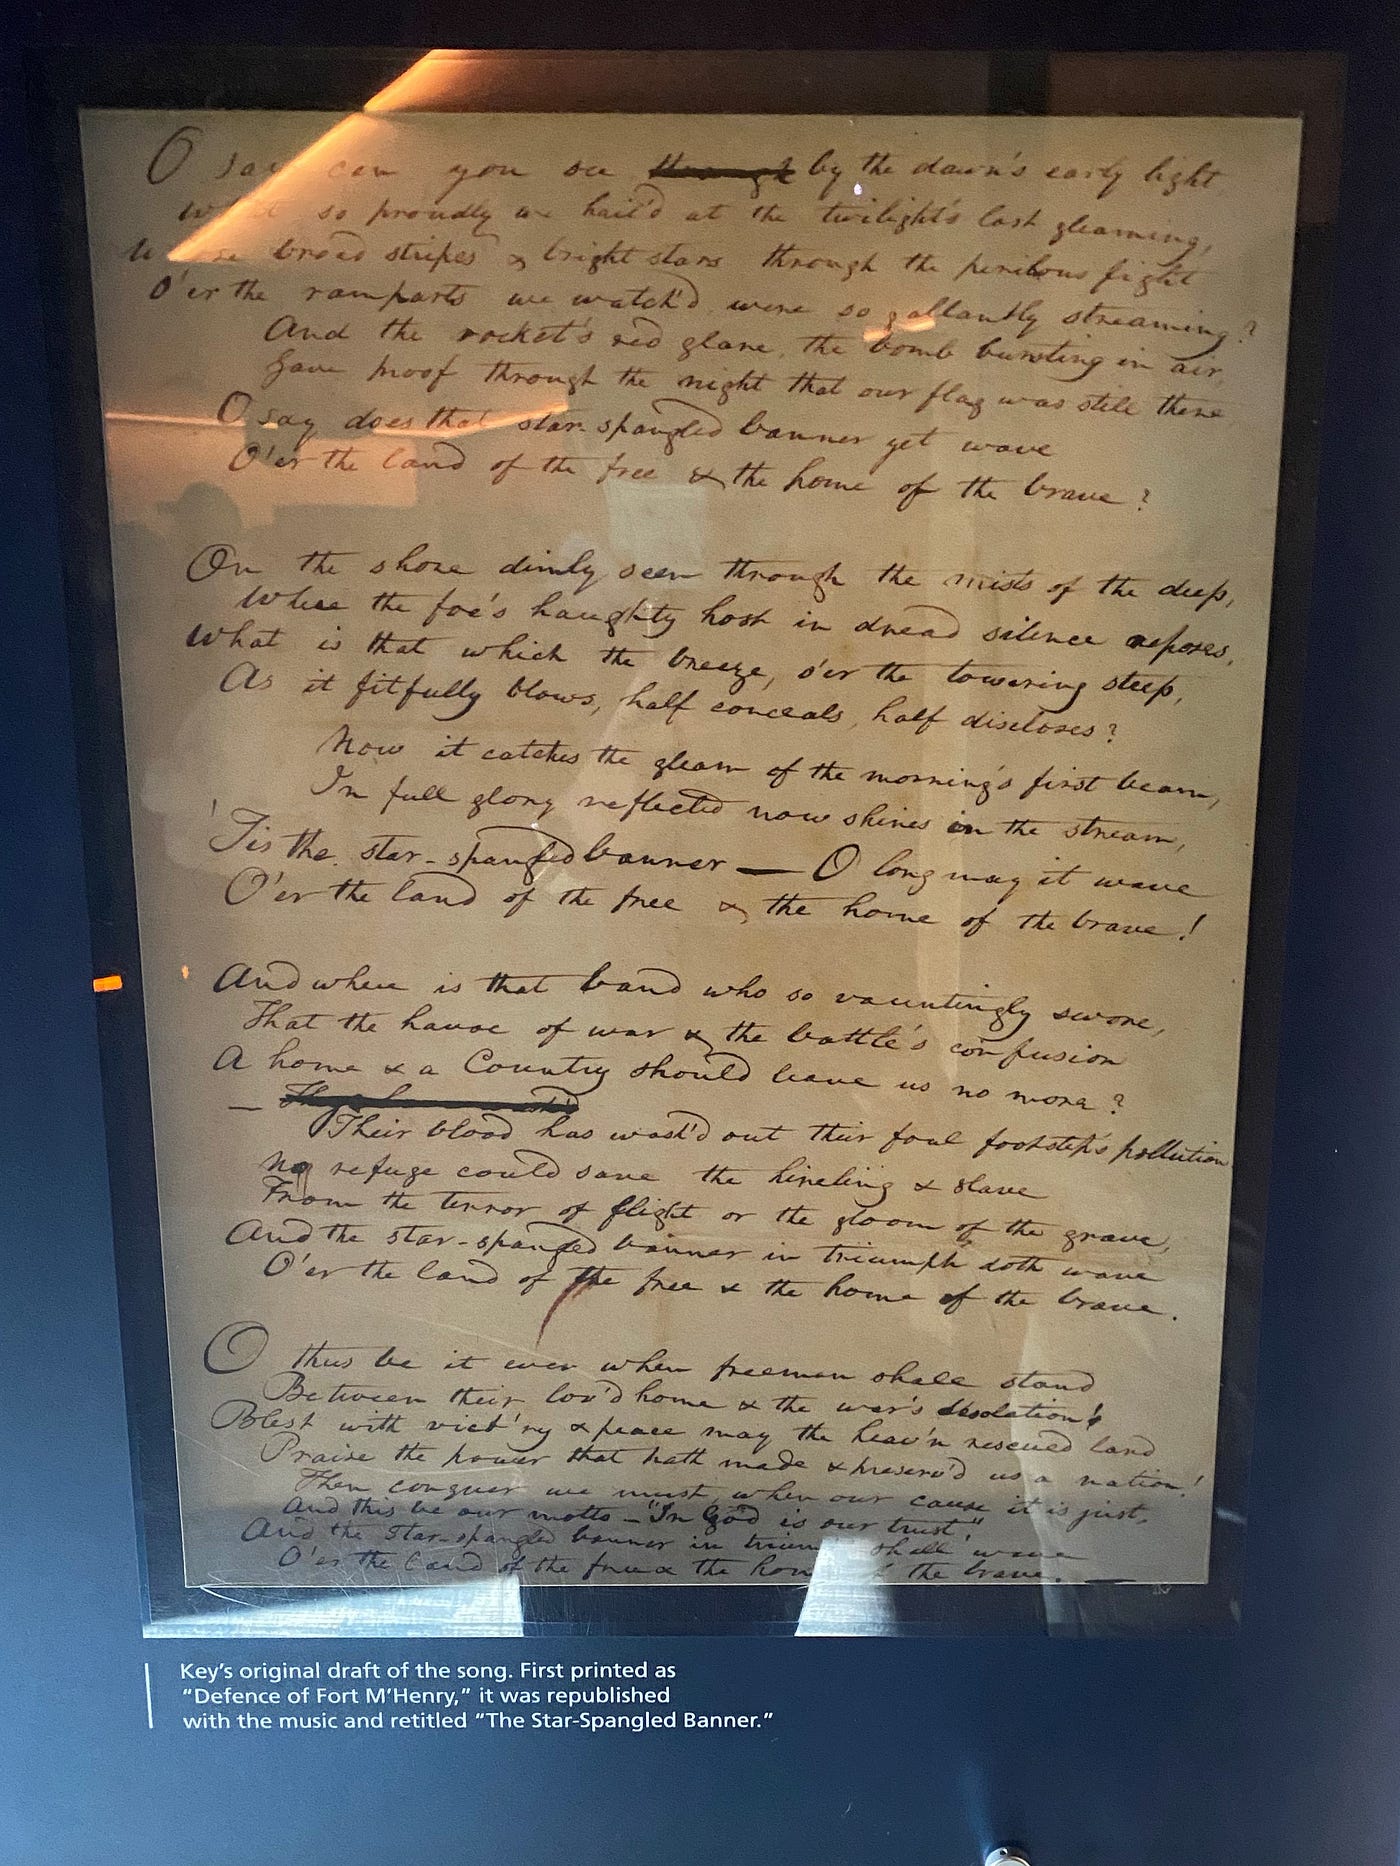 O say can you see through by the dawn's early light
so proudly we hail'd at the twilight's last gleaming,
broad stripes & bright stars through the perilous fight
O'er the ramparts we watch'd, were so gallantly streaming?
And the rocket's red glare, the bomb bursting in air,
Gave proof through the night that our flag was still there
O say does that star-spangled banner yet wave
O'er the land of the free & the home of the brave?
On the shore dimly seen through the mists of the deep,
Where the foe's haughty host in dread silence reposes,
What is that which the breeze, o'er the towering steep,
As it fitfully blows, half conceals, half discloses?
Now it catches the gleam of the morning's first beam,
In full glory reflected now shines in the stream,
'Tis the star-spangled banner — O long may it wave
O'er the land of the free & the home of the brave!
And where is that band who so vauntingly swore,
That the havoc of war & the battle's confusion
A home & a Country should leave us no more?
—
Their blood has wash'd out their foul footstep's pollution
No refuge could save the hireling & slave
From the terror of flight or the gloom of the grave,
And the star-spangled banner in triumph doth wave
O'er the land of the free & the home of the brave.
O thus be it ever when freemen shall stand
Between their lov'd home & the war's desolation!
Blest with vict'ry & peace may the heav'n rescued land
Praise the power that hath made & preserv'd us a nation!
Then conquer we must, when our cause it is just,
And this be our motto — "In God is our trust,"
And the star-spangled banner in shall wave
O'er the land of the free & the the brave. —
Key's original draft of the song. First printed as
“Defence of Fort M'Henry,” it was republished
with the music and retitled “The Star-Spangled Banner.”